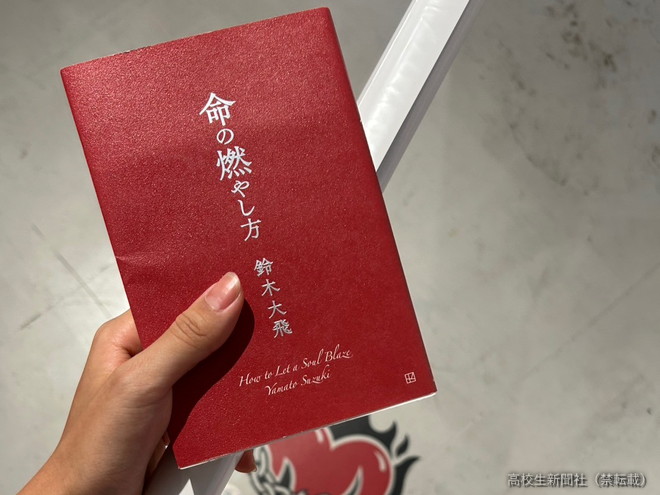 命の燃やし方
鈴木大飛
How to Let a Soul Blaze
Yamato Suzuki
高校生新聞社（禁転載）